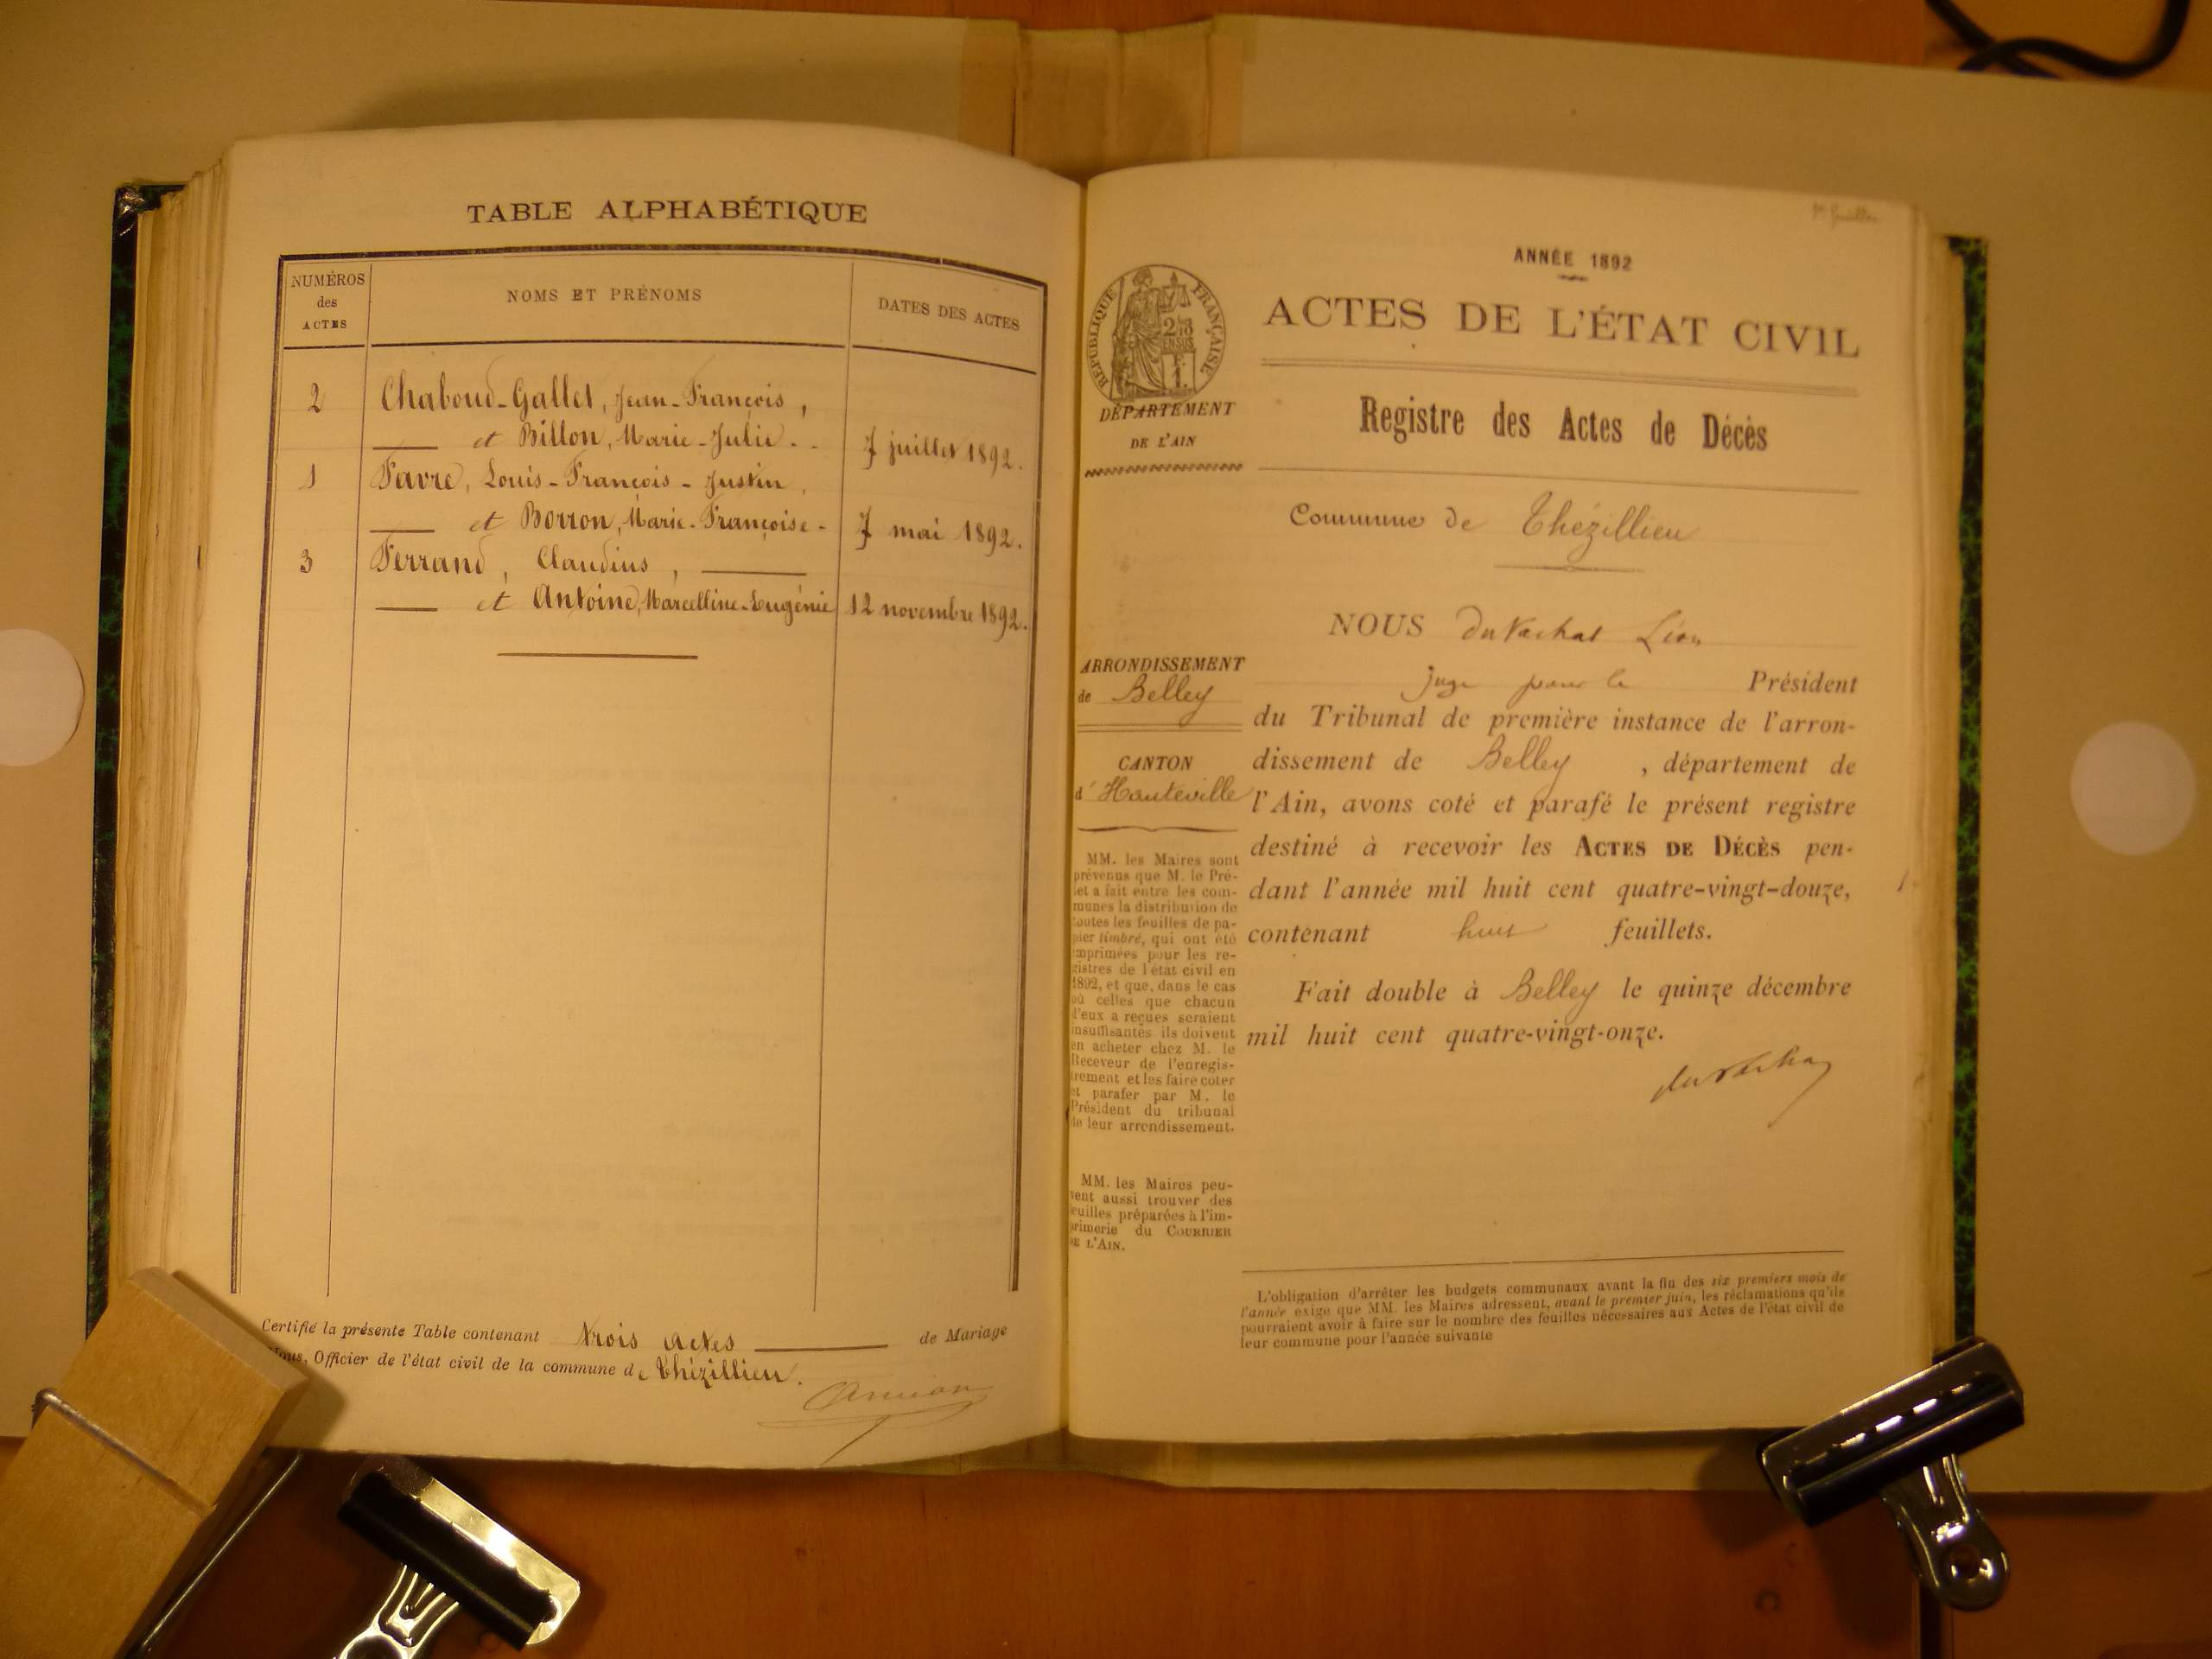 TABLE ALPHABÉTIQUE
NUMÉROS
des
ACTES
NOMS ET PRÉNOMS
DATES DES ACTES
2 Chaboud-Gallet, Jean-François,
et Billon, Marie-Julie. 7 juillet 1892.
1 Favre, Louis-François-Justin,
et Borron, Marie-Françoise- 7 mai 1892.
3 Ferrand, Claudius,
et Antoine, Marcelline-Eugénie 12 novembre 1892.
Certifié la présente Table contenant trois actes de Mariage
Nous, Officier de l'état civil de la commune de Thézillieu.
ANNÉE 1892
RÉPUBLIQUE FRANÇAISE
ACTES DE L'ÉTAT CIVIL
Registre des Actes de Décès
DÉPARTEMENT
DE L'AIN
Commune de Thézillieu
ARRONDISSEMENT
de Belley
CANTON
d'Hauteville
MM. les Maires sont
prévenus que M. le Pré-
fet a fait entre les com-
munes la distribution de
toutes les feuilles de pa-
pier timbré, qui ont été
imprimées pour les re-
gistres de l'état civil en
1892, et que, dans le cas
où celles que chacun
d'eux a reçues seraient
insuffisantes ils doivent
en acheter chez M. le
Receveur de l'enregis-
trement et les faire coter
et parafer par M. le
Président du tribunal
de leur arrondissement.
MM. les Maires peu-
vent aussi trouver des
feuilles préparées à l'im-
primerie du COURRIER
DE L'AIN.
NOUS du Vachat Léon
juge pour le Président
du Tribunal de première instance de l'arron-
dissement de Belley, département de
l'Ain, avons coté et parafé le présent registre
destiné à recevoir les ACTES DE DÉCÈS pen-
dant l'année mil huit cent quatre-vingt-douze,
contenant huit feuillets.
Fait double à Belley le quinze décembre
mil huit cent quatre-vingt-onze.
du Vachat
L'obligation d'arrêter les budgets communaux avant la fin des six premiers mois de
l'année exige que MM. les Maires adressent, avant le premier juin, les réclamations qu'ils
pourraient avoir à faire sur le nombre des feuilles nécessaires aux Actes de l'état civil de
leur commune pour l'année suivante